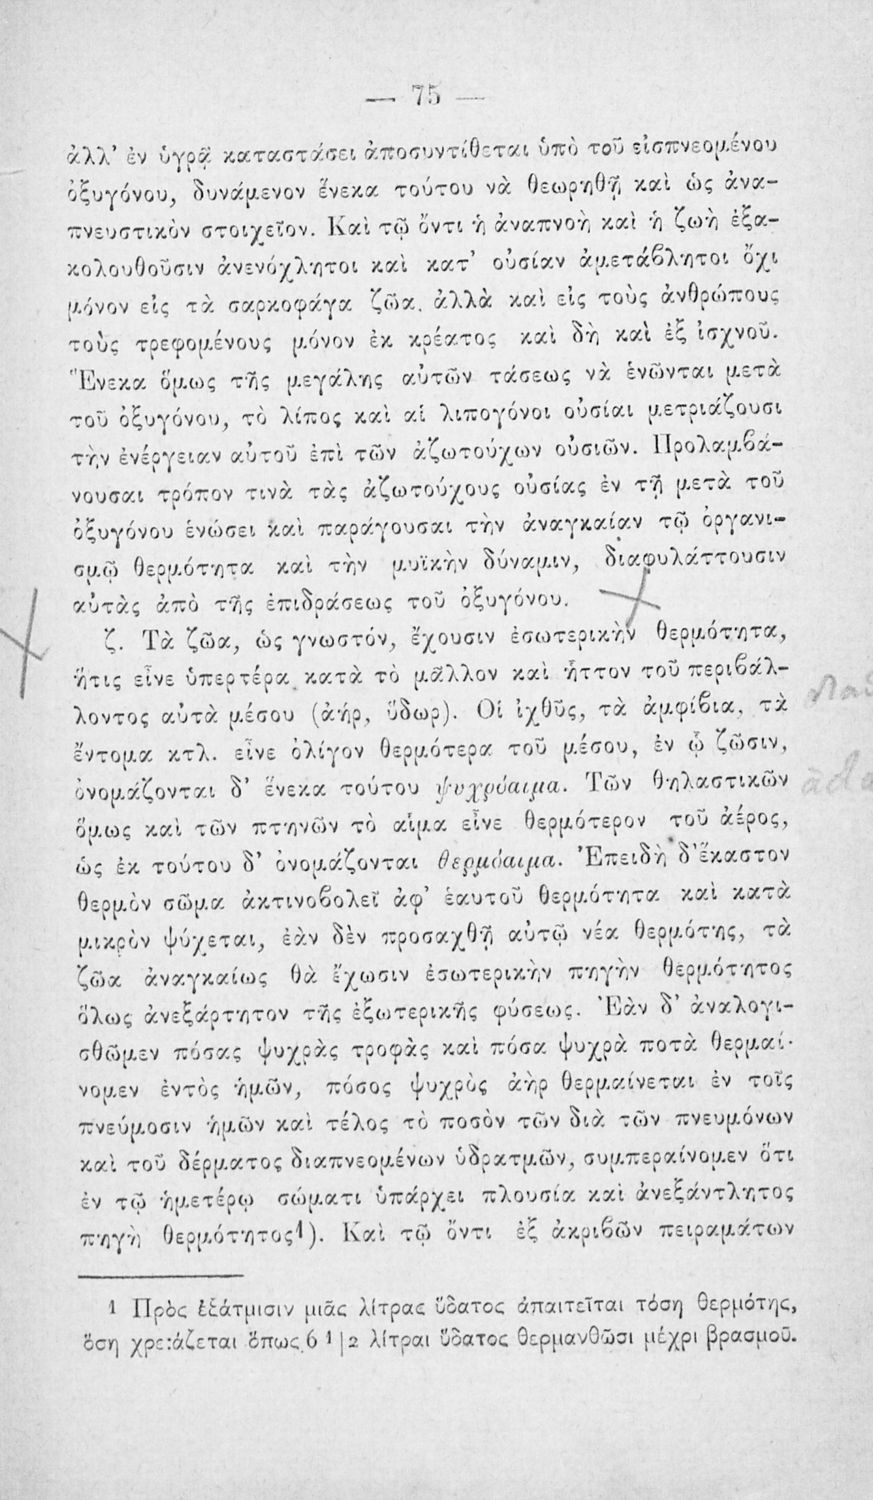 — 75 —
ἀλλ’ ἐν ὑγρᾷ καταστάσει ἀποσυντίθεται ὑπὸ τοῦ εἰσπνεομένου
ὀξυγόνου, δυνάμενον ἕνεκα τούτου νὰ θεωρηθῇ καὶ ὡς ἀνα-
πνευστικὸν στοιχεῖον. Καὶ τῷ ὄντι ἡ ἀναπνοὴ καὶ ἡ ζωὴ ἐξα-
κολουθοῦσιν ἀνενόχλητοι καὶ κατ’ οὐσίαν ἀμετάβλητοι ὄχι
μόνον εἰς τὰ σαρκοφάγα ζῶα, ἀλλὰ καὶ εἰς τοὺς ἀνθρώπους
τοὺς τρεφομένους μόνον ἐκ κρέατος καὶ δὴ καὶ ἐξ ἰσχνοῦ.
Ἕνεκα ὅμως τῆς μεγάλης αὐτῶν τάσεως νὰ ἑνῶνται μετὰ
τοῦ ὀξυγόνου, τὸ λίπος καὶ αἱ λιπογόνοι οὐσίαι μετριάζουσι
τὴν ἐνέργειαν αὐτοῦ ἐπὶ τῶν ἀζωτούχων οὐσιῶν. Προλαμβά-
νουσαι τρόπον τινὰ τὰς ἀζωτούχους οὐσίας ἐν τῇ μετὰ τοῦ
ὀξυγόνου ἑνώσει καὶ παράγουσαι τὴν ἀναγκαίαν τῷ ὀργανι-
σμῷ θερμότητα καὶ τὴν μυϊκὴν δύναμιν, διαφυλάττουσιν
αὐτὰς ἀπὸ τῆς ἐπιδράσεως τοῦ ὀξυγόνου.
ζ. Τὰ ζῶα, ὡς γνωστόν, ἔχουσιν ἐσωτερικὴν θερμότητα,
ἥτις εἶνε ὑπερτέρα κατὰ τὸ μᾶλλον καὶ ἧττον τοῦ περιβάλ-
λοντος αὐτὰ μέσου (ἀήρ, ὕδωρ). Οἱ ἰχθῦς, τὰ ἀμφίβια, τὰ
ἔντομα κτλ. εἶνε ὀλίγον θερμότερα τοῦ μέσου, ἐν ᾧ ζῶσιν,
ὀνομάζονται δ’ ἕνεκα τούτου ψυχρόαιμα. Τῶν θηλαστικῶν
ὅμως καὶ τῶν πτηνῶν τὸ αἷμα εἶνε θερμότερον τοῦ ἀέρος,
ὡς ἐκ τούτου δ’ ὀνομάζονται θερμόαιμα. Ἐπειδὴ δ’ ἕκαστον
θερμὸν σῶμα ἀκτινοβολεῖ ἀφ’ ἑαυτοῦ θερμότητα καὶ κατὰ
μικρὸν ψύχεται, ἐὰν δὲν προσαχθῇ αὐτῷ νέα θερμότης, τὰ
ζῶα ἀναγκαίως θὰ ἔχωσιν ἐσωτερικὴν πηγὴν θερμότητος
ὅλως ἀνεξάρτητον τῆς ἐξωτερικῆς φύσεως. Ἐὰν δ’ ἀναλογι-
σθῶμεν πόσας ψυχρὰς τροφὰς καὶ πόσα ψυχρὰ ποτὰ θερμαί-
νομεν ἐντὸς ἡμῶν, πόσος ψυχρὸς ἀὴρ θερμαίνεται ἐν τοῖς
πνεύμοσιν ἡμῶν καὶ τέλος τὸ ποσὸν τῶν διὰ τῶν πνευμόνων
καὶ τοῦ δέρματος διαπνεομένων ὑδρατμῶν, συμπεραίνομεν ὅτι
ἐν τῷ ἡμετέρῳ σώματι ὑπάρχει πλουσία καὶ ἀνεξάντλητος
πηγὴ θερμότητος1). Καὶ τῷ ὄντι ἐξ ἀκριβῶν πειραμάτων
1 Πρὸς ἐξάτμισιν μιᾶς λίτρας ὕδατος ἀπαιτεῖται τόση θερμότης,
ὅση χρειάζεται ὅπως 6 1|2 λίτραι ὕδατος θερμανθῶσι μέχρι βρασμοῦ.